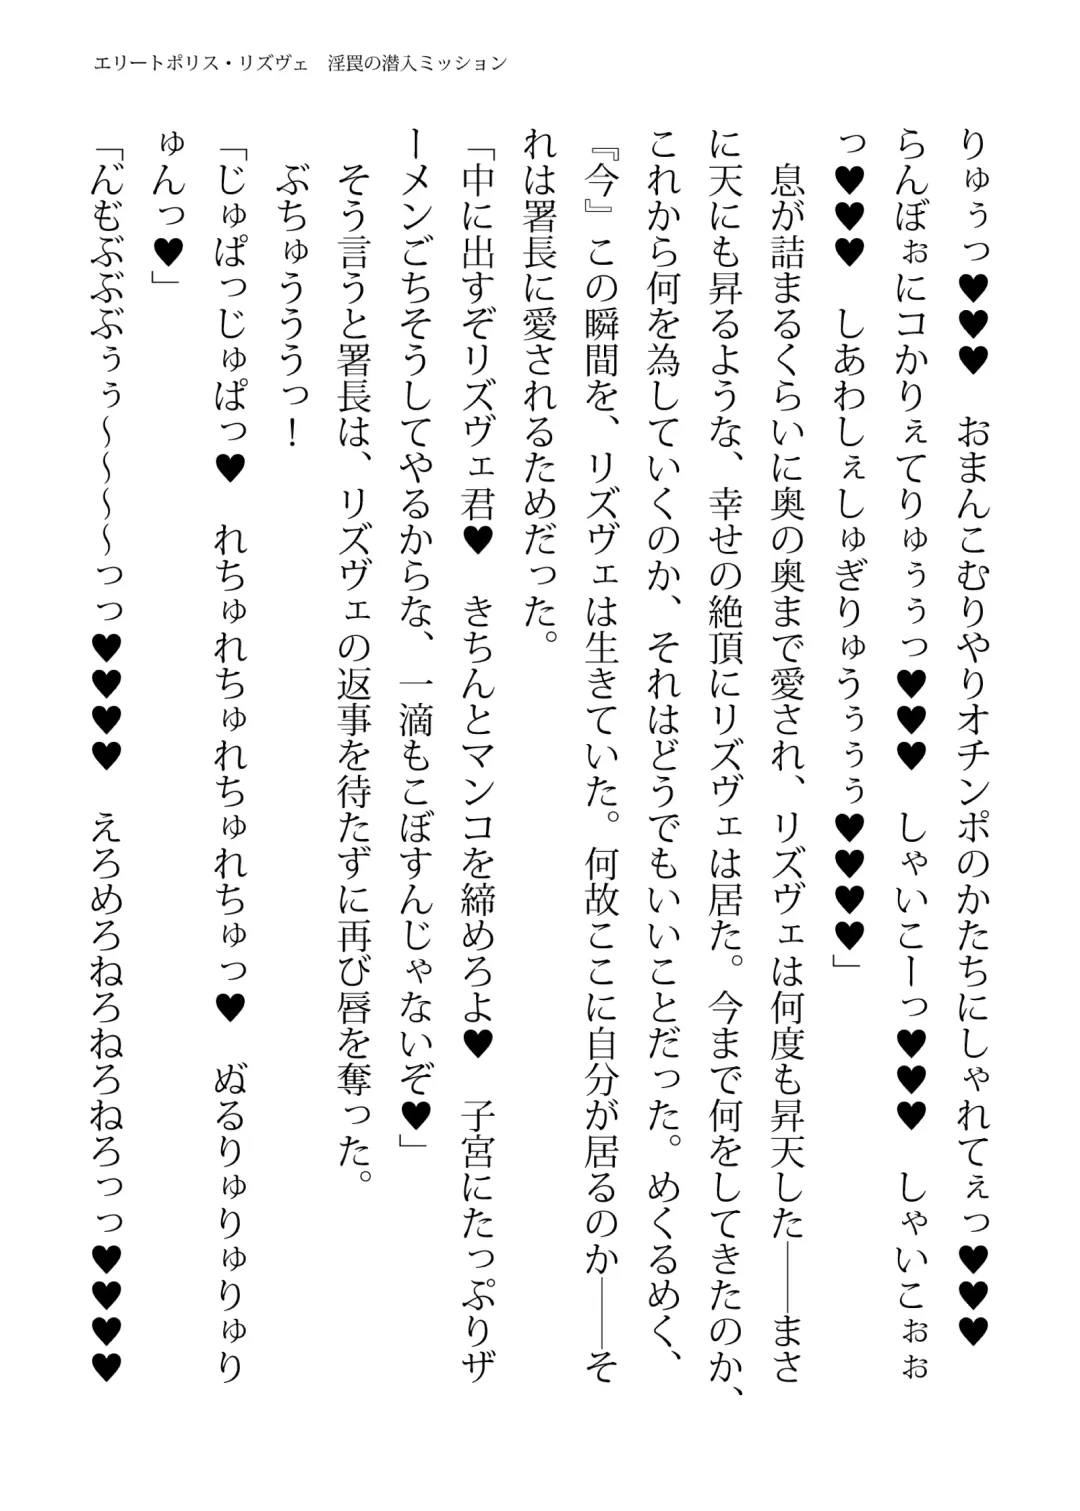 エリートポリス・リズヴェ　淫罠の潜入ミッション
りゅぅっ♥♥♥　おまんこむりやりオチンポのかたちにしゃれてぇっ♥♥♥
らんぼぉにコかりぇてりゅぅぅっ♥♥♥　しゃいこーっ♥♥♥　しゃいこぉぉ
っ♥♥♥　しあわしぇしゅぎりゅうぅぅぅ♥♥♥♥」
　息が詰まるくらいに奥の奥まで愛され、リズヴェは何度も昇天した――まさ
に天にも昇るような、幸せの絶頂にリズヴェは居た。今まで何をしてきたのか、
これから何を為していくのか、それはどうでもいいことだった。めくるめく、
『今』この瞬間を、リズヴェは生きていた。何故ここに自分が居るのか――そ
れは署長に愛されるためだった。
「中に出すぞリズヴェ君♥　きちんとマンコを締めろよ♥　子宮にたっぷりザ
ーメンごちそうしてやるからな、一滴もこぼすんじゃないぞ♥」
　そう言うと署長は、リズヴェの返事を待たずに再び唇を奪った。
　ぶちゅうううっ！
「じゅぱっじゅぱっ♥　れちゅれちゅれちゅれちゅっ♥　ぬるりゅりゅりゅり
ゅんっ♥」
「ん゛も゛ぶぶぶぅぅ～～～～っっ♥♥♥♥　えろめろねろねろねろっっ♥♥♥♥